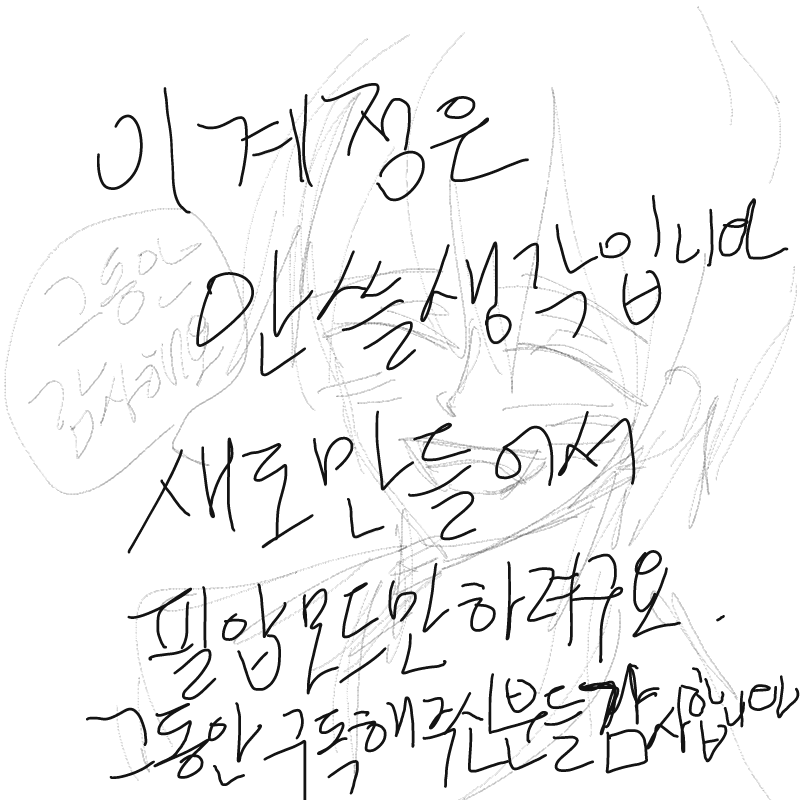 이 계정은
안쓸생각입니다
그동안
감사해요
새로만들어서
필압모드만하려구요.
그동안 구독해주신분들감사합니다